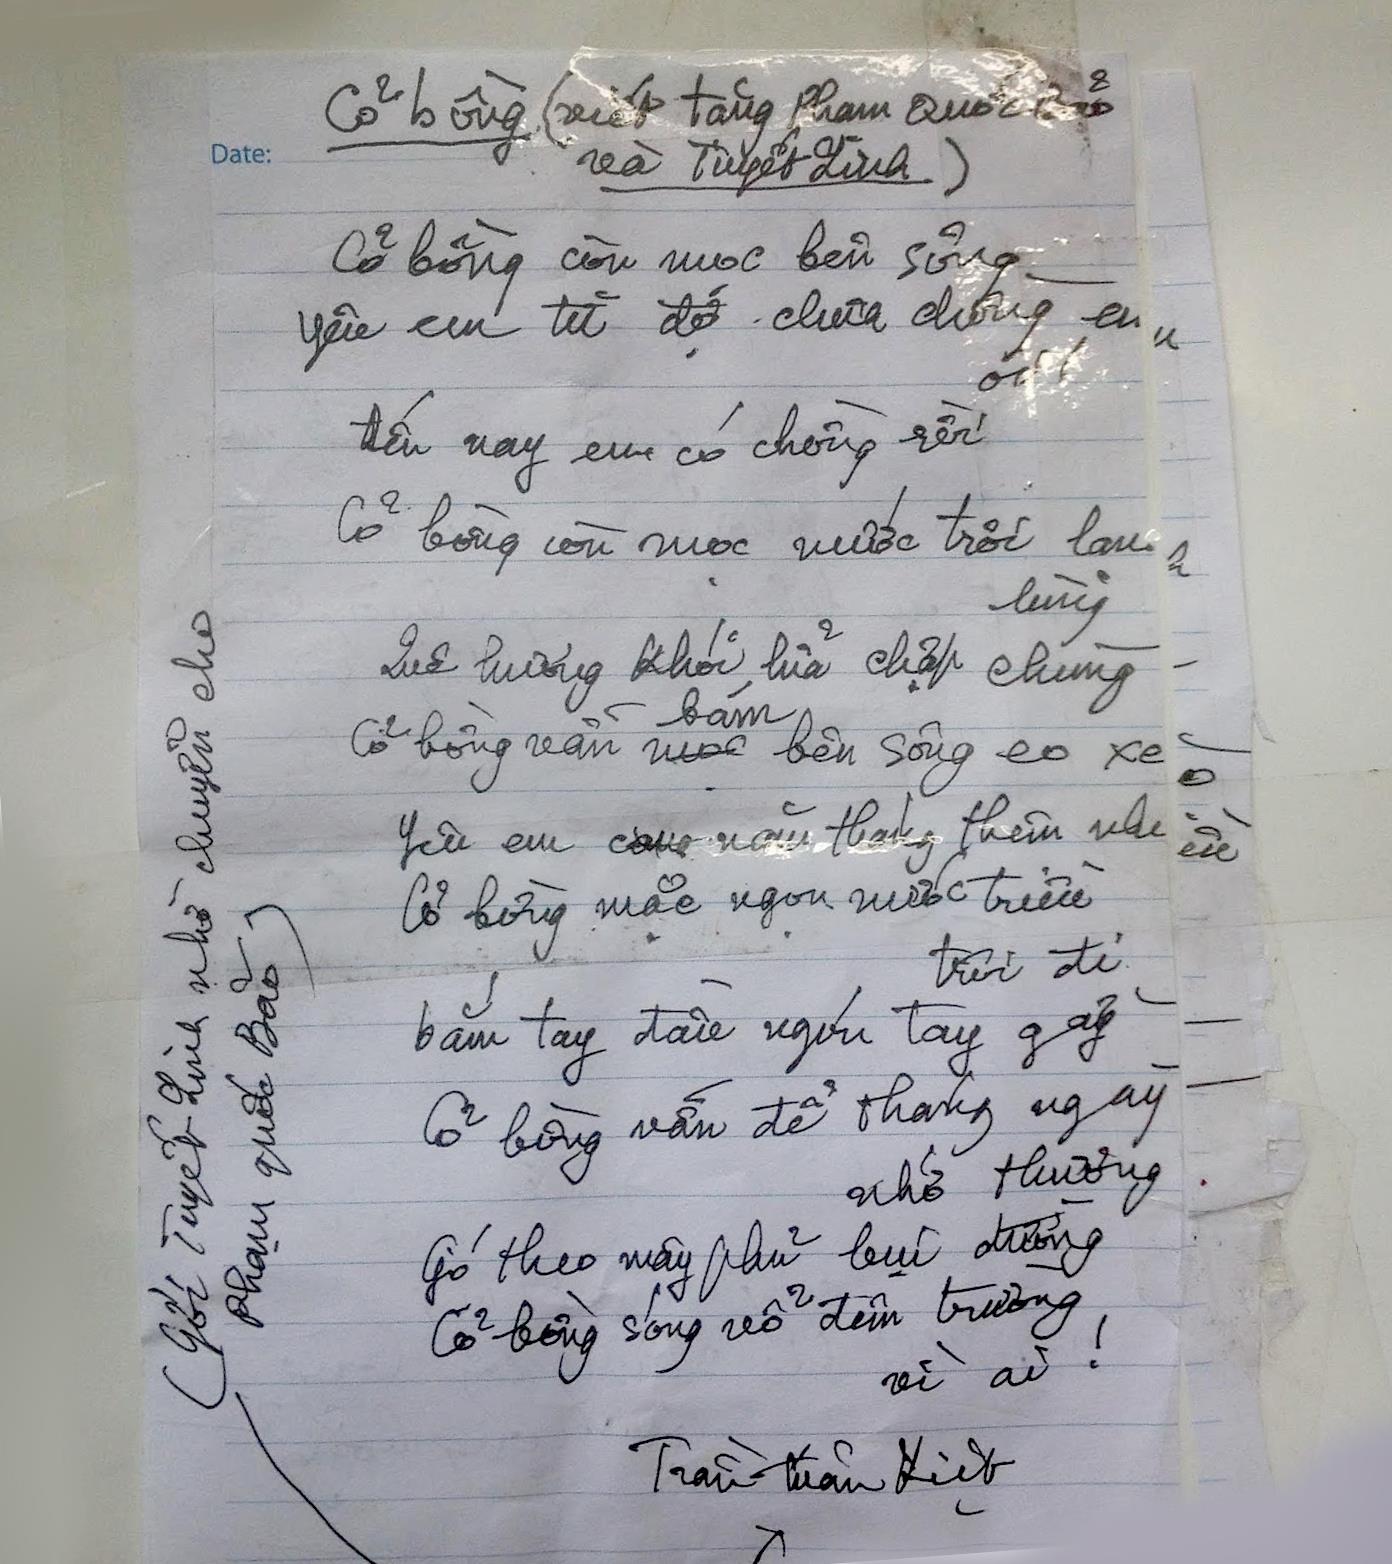 Cỏ bồng (viết tặng Phạm Quốc Bảo
và Tuyết Linh)
Date:
Cỏ bồng còn mọc bên sông
Yêu em từ đó chưa chồng em
ơi!
Đến nay em có chồng rồi
Cỏ bồng còn mọc nước trôi lạnh
lùng
Quê hương khói lửa chập chùng
bám
Cỏ bồng vẫn mọc bên sông eo xèo
Yêu em năm tháng thêm nhiều
Cỏ bồng mặc ngọn nước triều
trôi đi
bấm tay đau ngón tay gầy
Cỏ bồng vẫn để tháng ngày
nhớ thương
Gó theo mây phủ bụi đường
Cỏ bồng sóng vỗ đêm trường
vì ai!
Trần Tuấn Kiệt
(Gởi Tuyết Linh nhờ chuyển cho
Phạm Quốc Bảo)